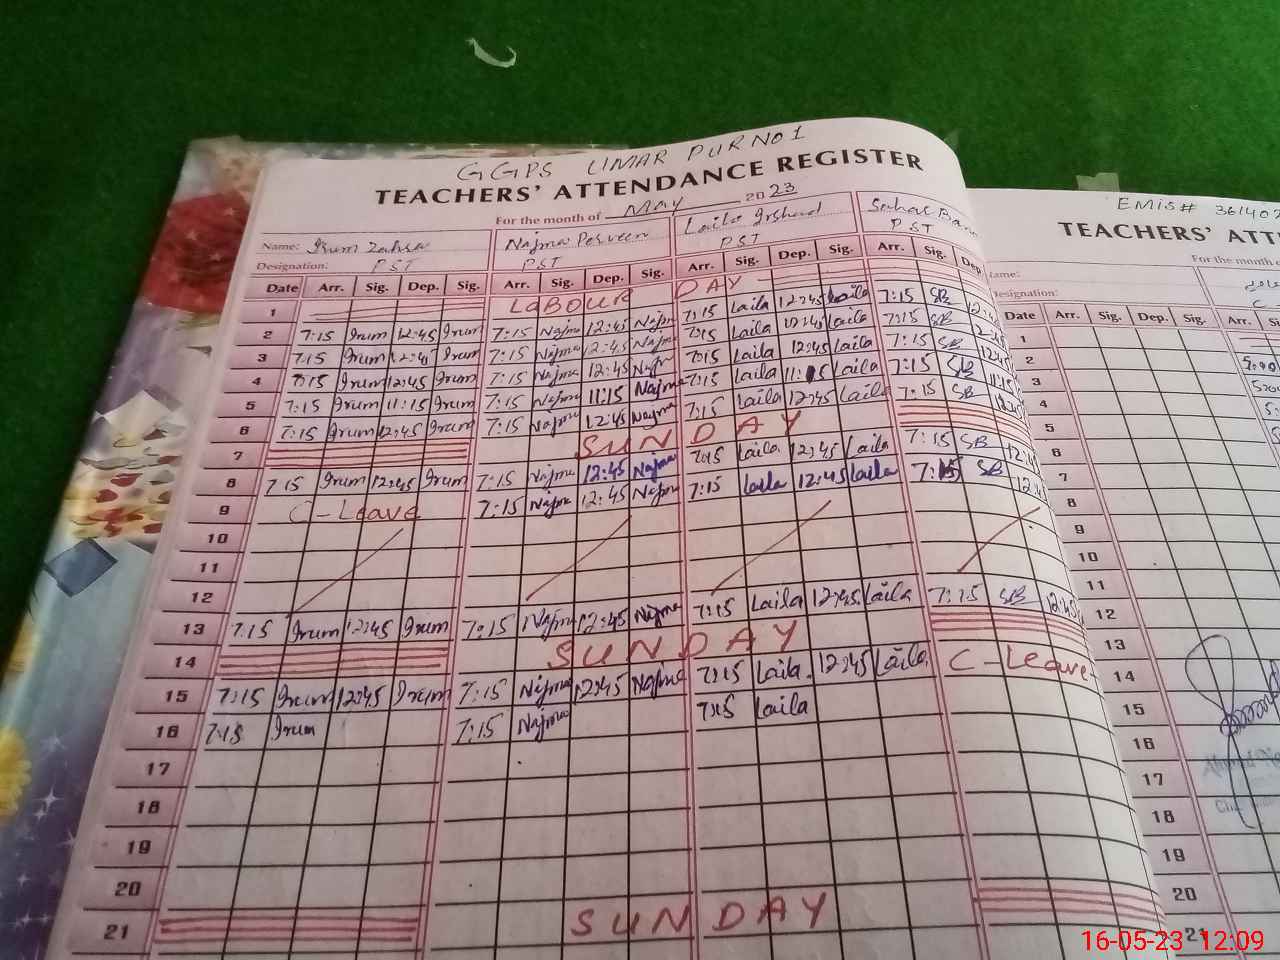 GGPS UMAR PUR NO 1
TEACHERS' ATTENDANCE REGISTER
For the month of May 2023
Name: Irum Zahra Najma Perveen Laila Irshad Sahar Bano
Designation: PST PST PST PST
Date Arr. Sig. Dep. Sig. Arr. Sig. Dep. Sig. Arr. Sig. Dep. Sig. Arr. Sig. Dep.
1 LABOUR DAY
2 7:15 Irum 12:45 Irum 7:15 Najma 12:45 Najma 7:15 Laila 12:45 Laila 7:15 SB 12:45
3 7:15 Irum 12:45 Irum 7:15 Najma 12:45 Najma 7:15 Laila 12:45 Laila 7:15 SB 12:45
4 7:15 Irum 12:45 Irum 7:15 Najma 12:45 Najma 7:15 Laila 12:45 Laila 7:15 SB 12:45
5 7:15 Irum 11:15 Irum 7:15 Najma 11:15 Najma 7:15 Laila 11:15 Laila 7:15 SB 11:15
6 7:15 Irum 12:45 Irum 7:15 Najma 12:45 Najma 7:15 Laila 12:45 Laila 7:15 SB 12:45
7 SUNDAY
8 7:15 Irum 12:45 Irum 7:15 Najma 12:45 Najma 7:15 Laila 12:45 Laila 7:15 SB 12:45
9 C-Leave 7:15 Najma 12:45 Najma 7:15 Laila 12:45 Laila 7:15 SB 12:45
10
11
12
13 7:15 Irum 12:45 Irum 7:15 Najma 12:45 Najma 7:15 Laila 12:45 Laila 7:15 SB 12:45
14 SUNDAY
15 7:15 Irum 12:45 Irum 7:15 Najma 12:45 Najma 7:15 Laila 12:45 Laila C-Leave
16 7:15 Irum 7:15 Najma 7:15 Laila
17
18
19
20
21 SUNDAY
EMIS# 
TEACHERS' ATT
For the month o
Name:
Designation:
Date Arr. Sig. Dep. Sig. Arr.
1
2
3
4
5
6
7
8
9
10
11
12
13
14
15
16
17
18
19
20
21
16-05-23 12:09